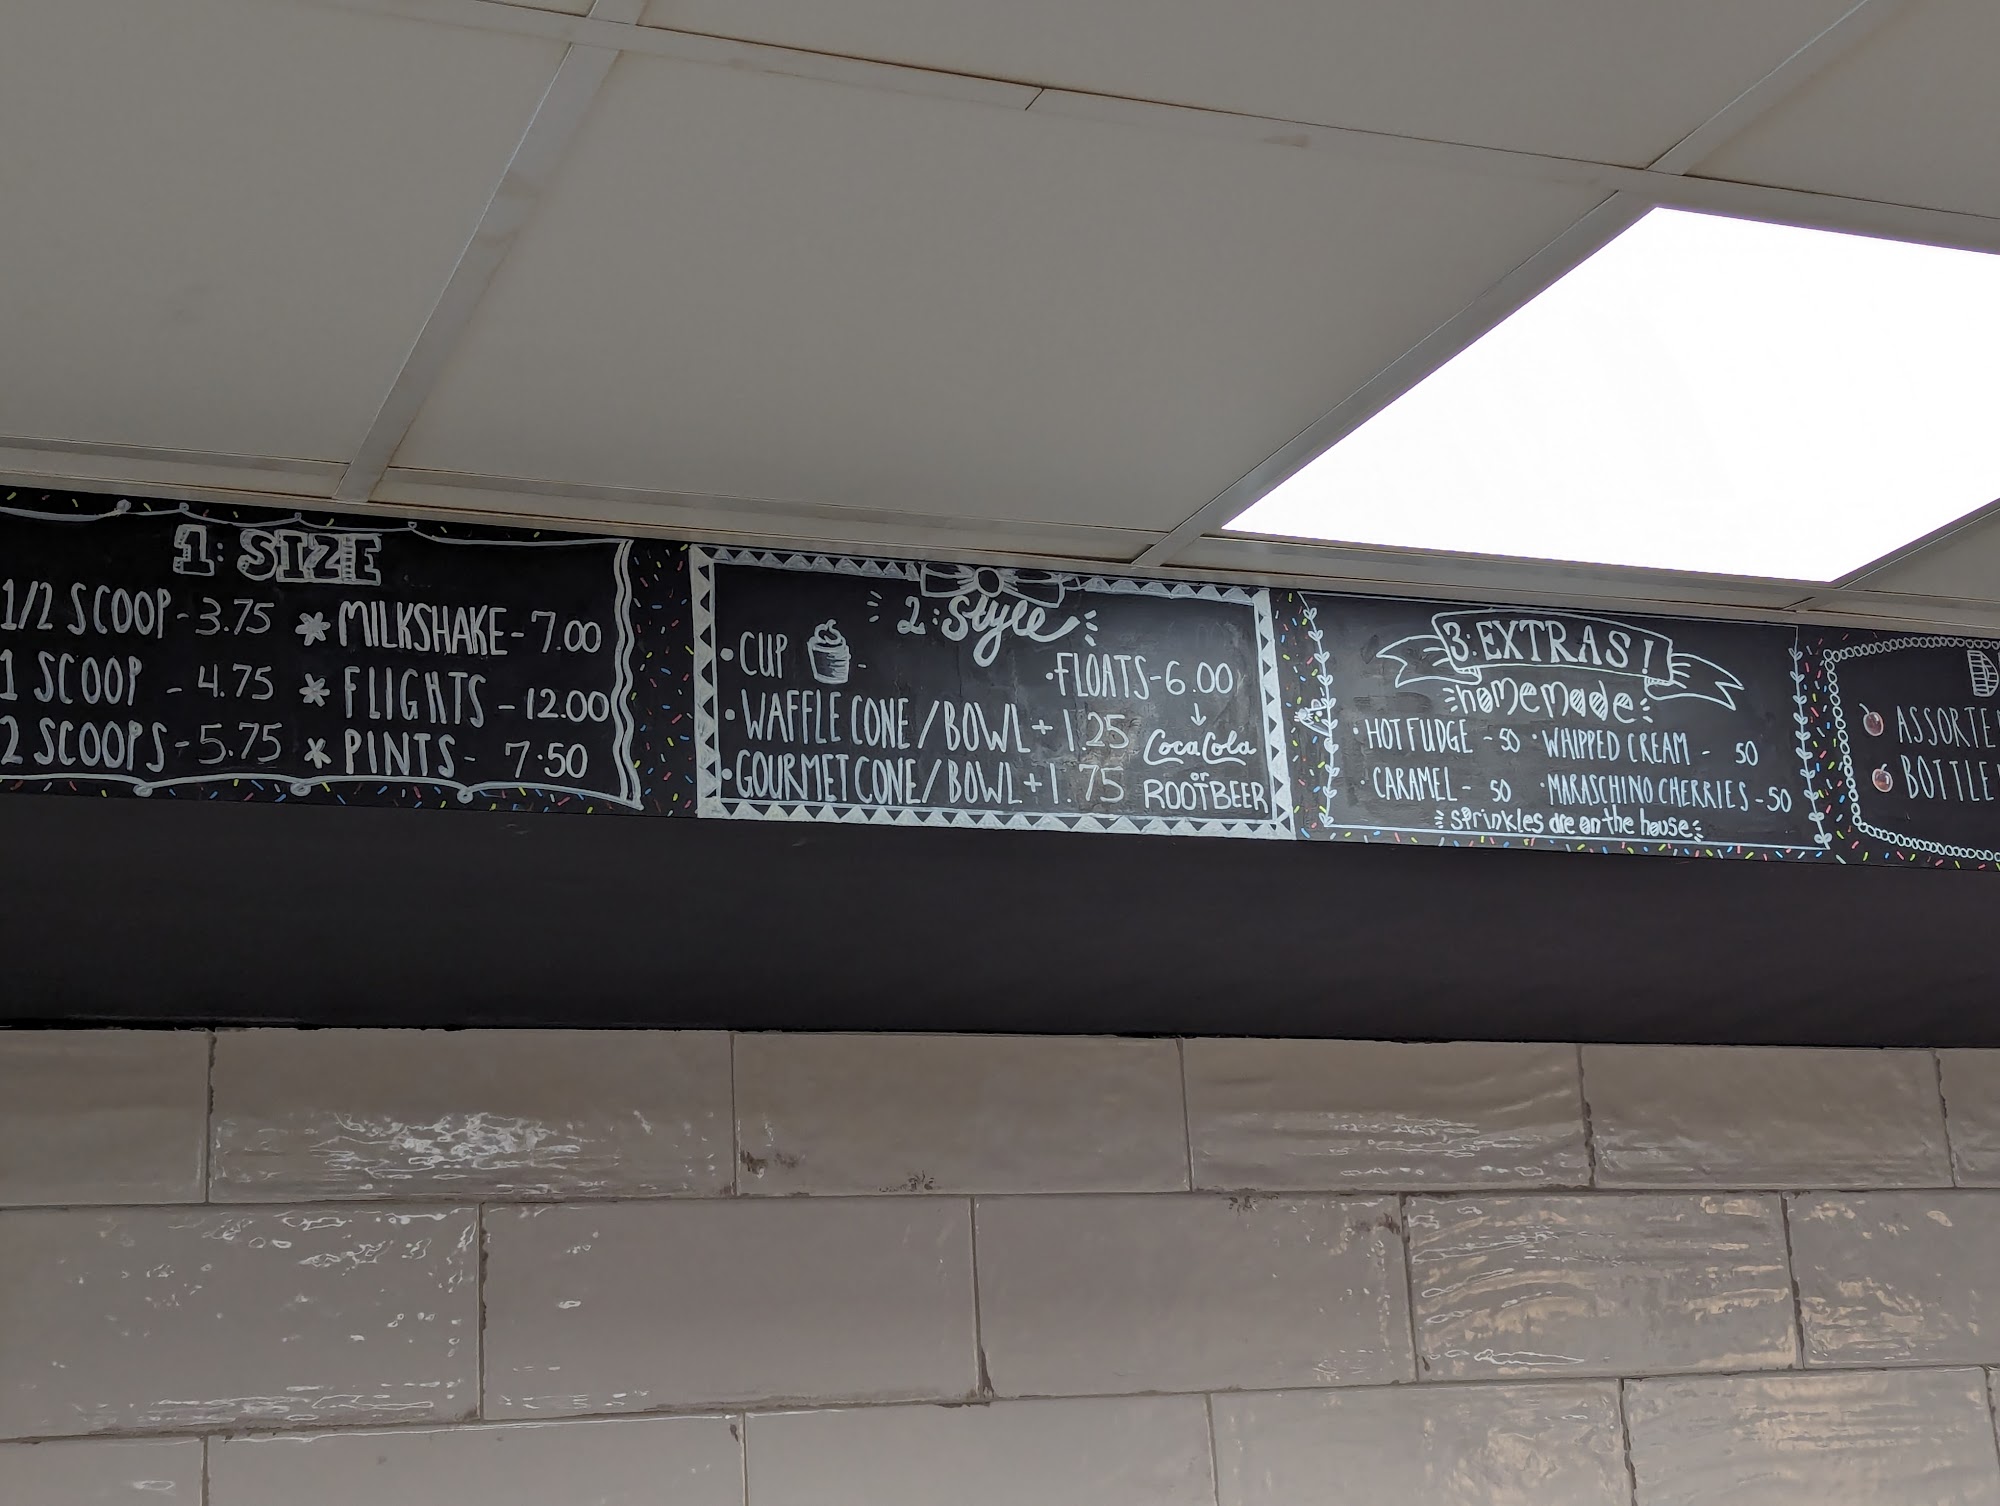 1: SIZE
1/2 SCOOP - 3.75 * MILKSHAKE - 7.00
1 SCOOP - 4.75 * FLIGHTS - 12.00
2 SCOOPS - 5.75 * PINTS - 7.50
2: Style
• CUP -
• FLOATS - 6.00
• WAFFLE CONE / BOWL + 1.25
CocaCola
or
• GOURMET CONE / BOWL + 1.75
ROOTBEER
3: EXTRAS!
homemade
• HOT FUDGE - 50 • WHIPPED CREAM - 50
• CARAMEL - 50 • MARASCHINO CHERRIES - 50
sprinkles are on the house
ASSORTE
BOTTLE